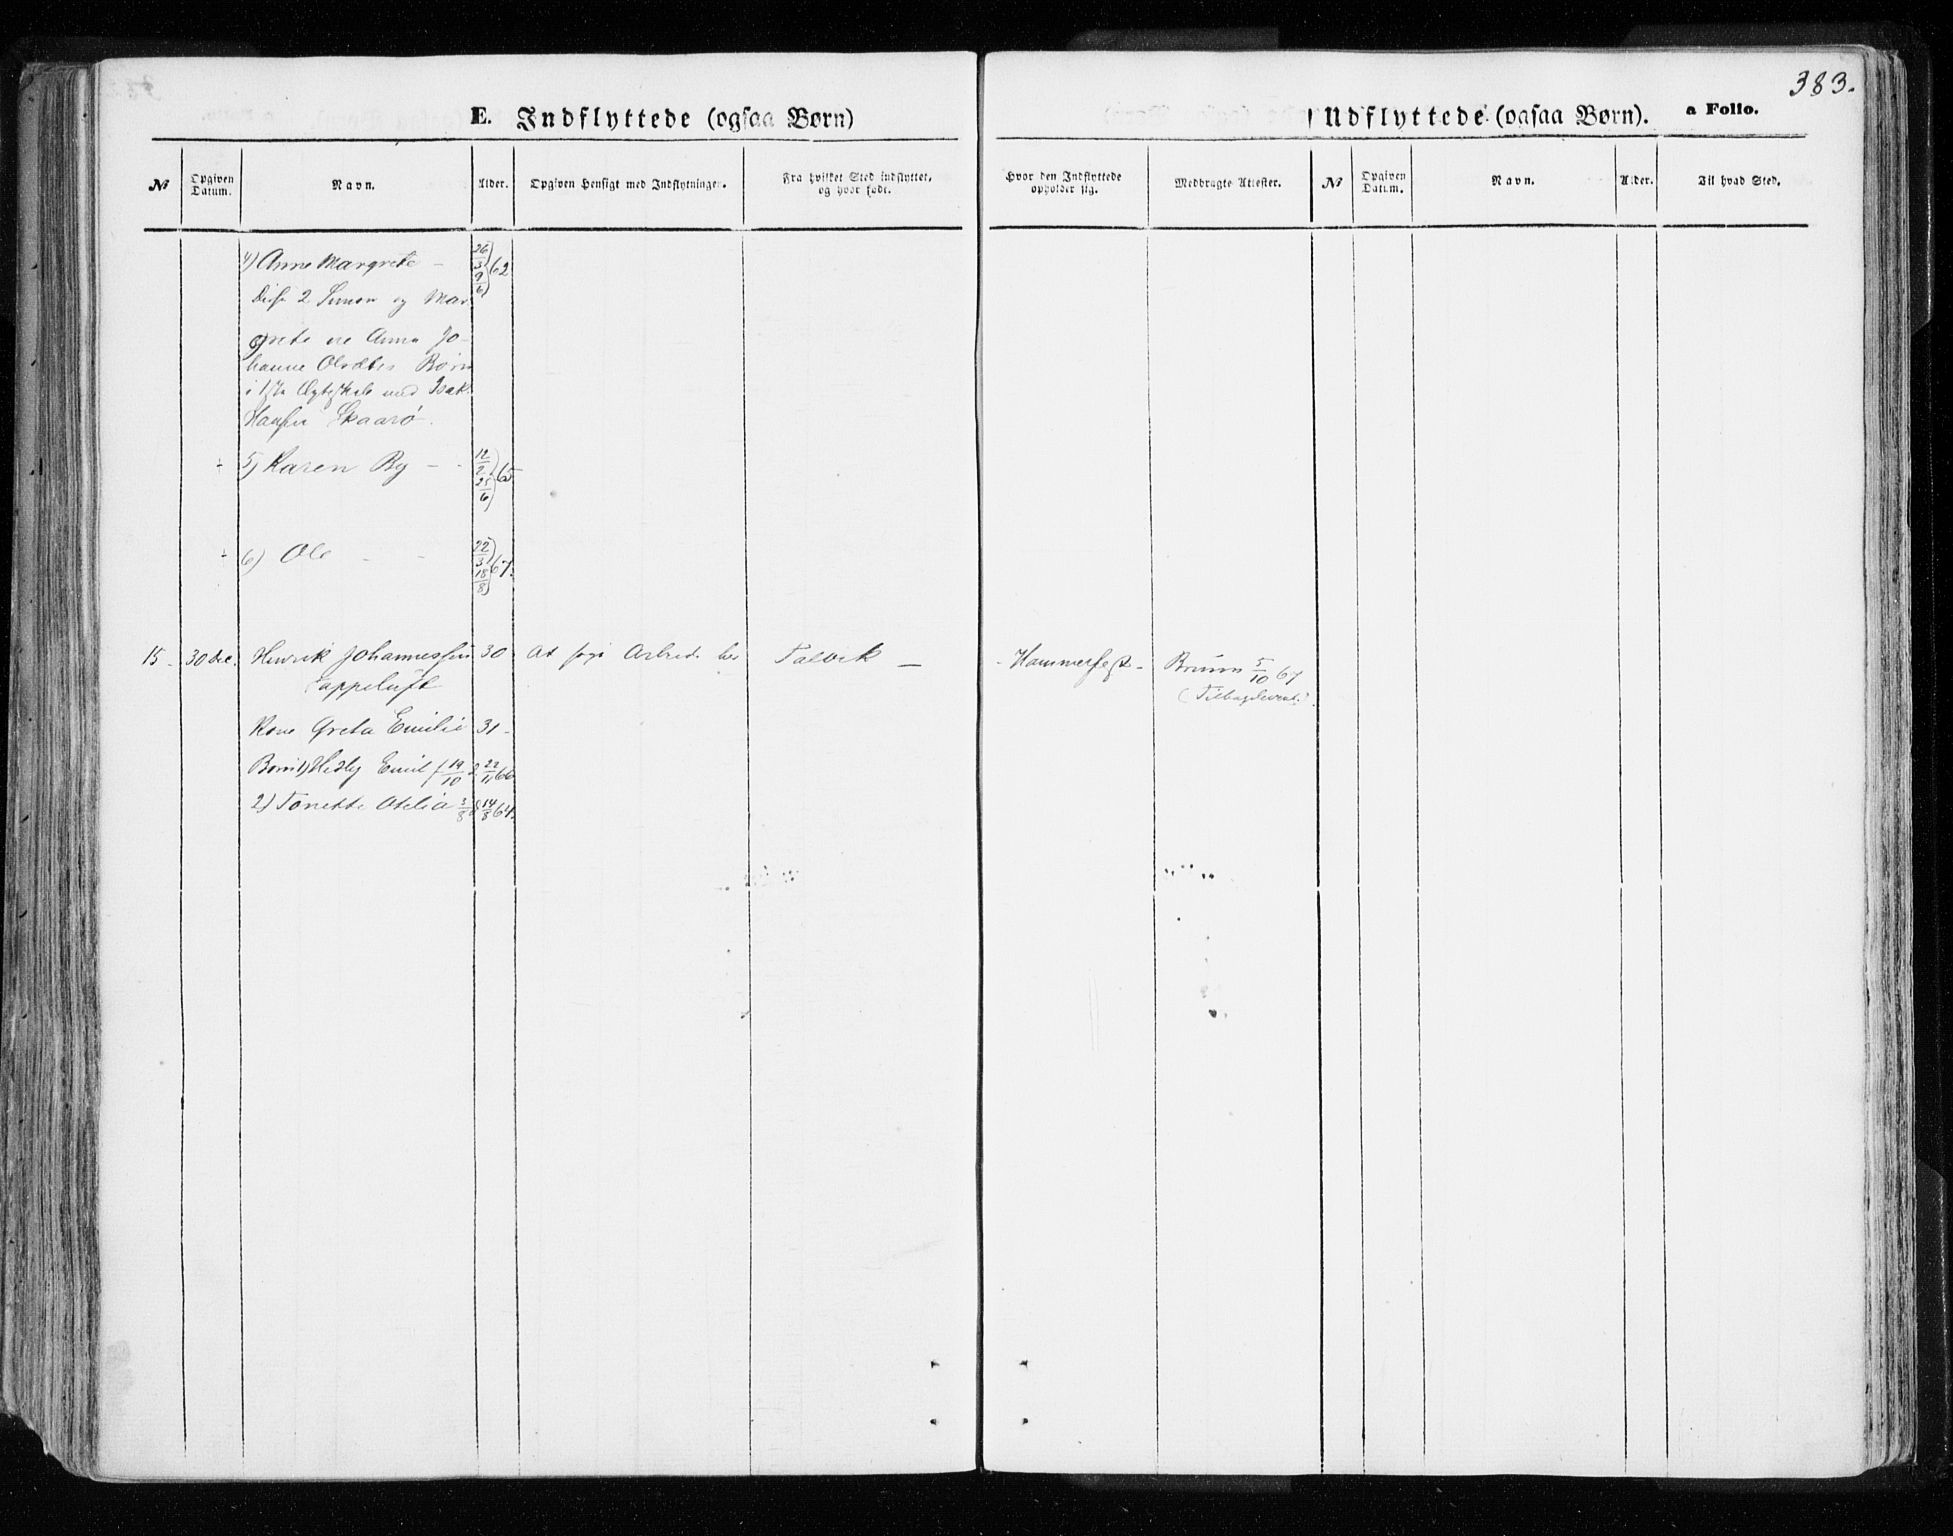 383.
E. Indflyttede (ogsaa Børn)
Udflyttede (ogsaa Børn). a Folio.
№ Opgiven Datum. Navn. Alder. Opgiven Hensigt med Indflytningen. Fra hvilket Sted indflyttet, og hvor født.
Hvor den Indflyttede opholder sig. Medbragte Attester. № Opgiven Datum. Navn. Alder. Til hvad Sted.
4) Anne Margrete – 26/3 9/6) 62
Disse 2 Simon og Mar
grete ere Anna Jo-
hanne Olsdtrs Børn
i 1ste Ægteskab med Isak
Hansen Skaarø.
÷ 5) Karen By – - 12/2 25/6) 65
÷ 6) Ole - - 22/3 18/8) 67.
15 - 30 dec. Henrik Johannessen 30 At søge Arbeid. her Talvik — - Hammerfest - Bruun 5/10 67
Kappeluft (Tilbagelevert.)
Kone Greta Emilie 31 -
Børn 1) Hedly Emil f 14/10 d 22/11 66
2) Tonette Otelia 3/8 d 14/8 64.